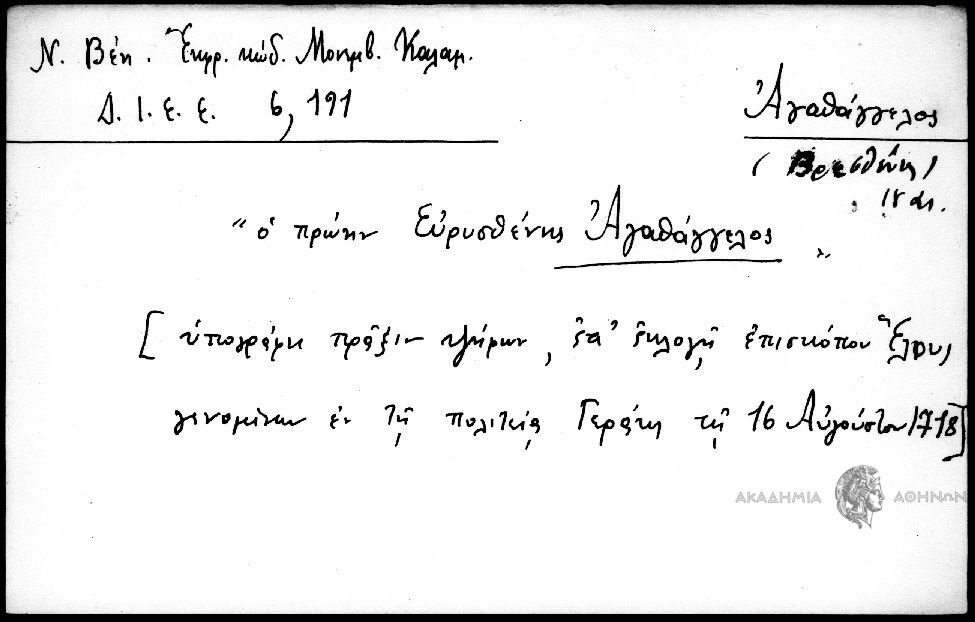 Ν. Βέη. Ἔκφρ. κώδ. Μονεμβ. Καλαμ.
Δ. Ι. Ε. Ε. 6, 191
Ἀγαθάγγελος
(Βρεσθένης)
" ὁ πρώην Εὐρυσθένης Ἀγαθάγγελος "
[ ὑπογράφει πρᾶξιν ψήφων, ἐπ' ἐκλογῇ ἐπισκόπου Ἕλους,
γενομένων ἐν τῇ πολιτείᾳ Γεράκι τῇ 16 Αὐγούστου 1718]
ΑΚΑΔΗΜΙΑ ΑΘΗΝΩΝ